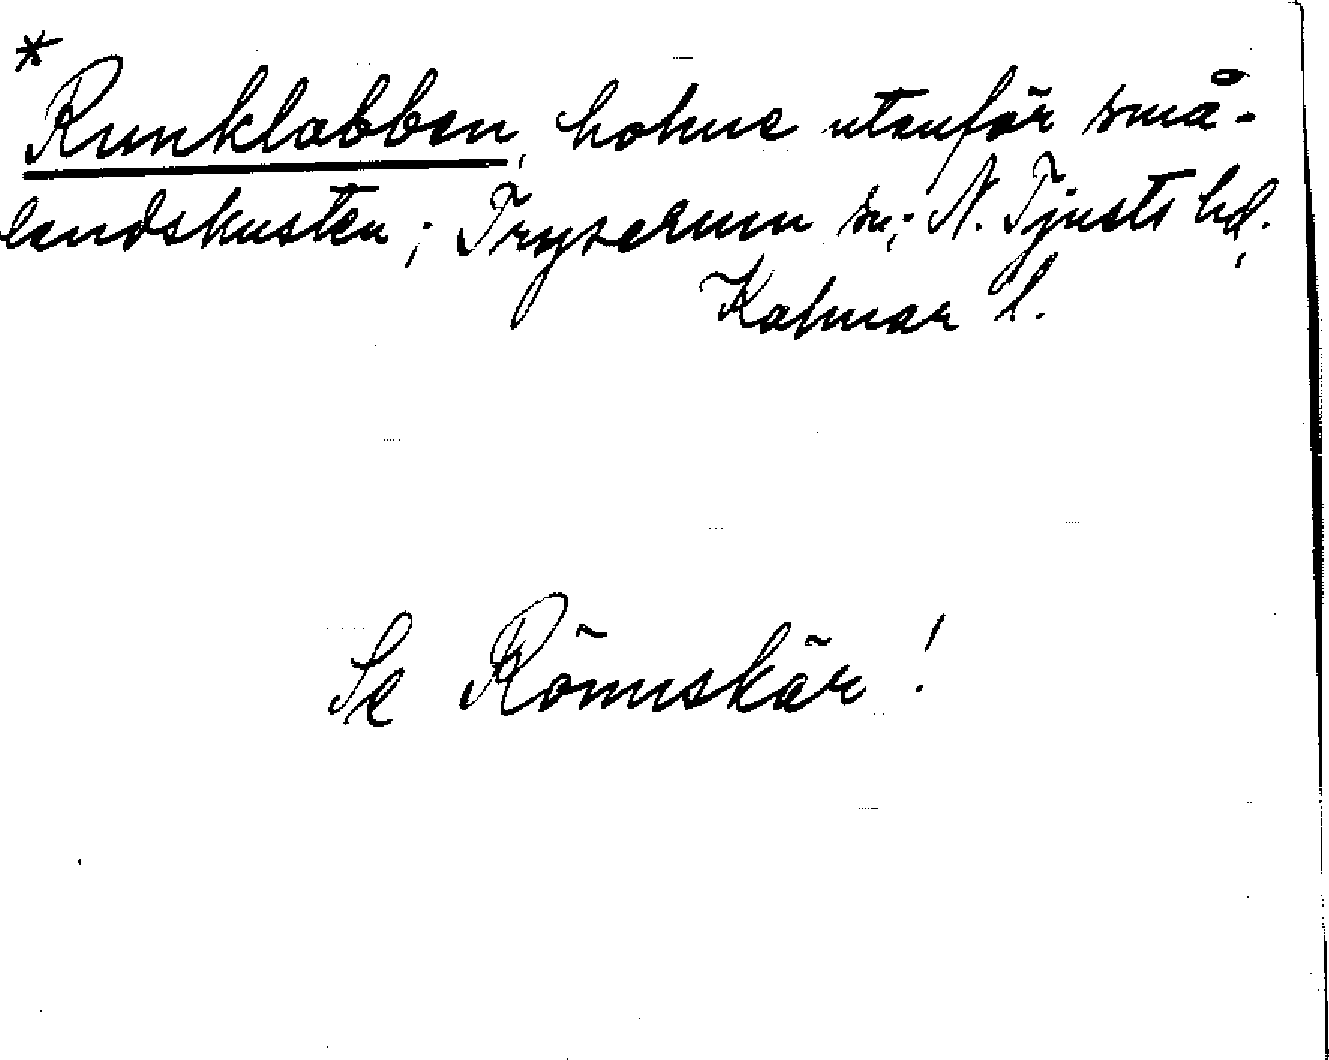 *
Runklabben, holme utanför små-
landskusten; Tryserum sn; N. Tjusts hd,
Kalmar l.
Se Rönnskär!